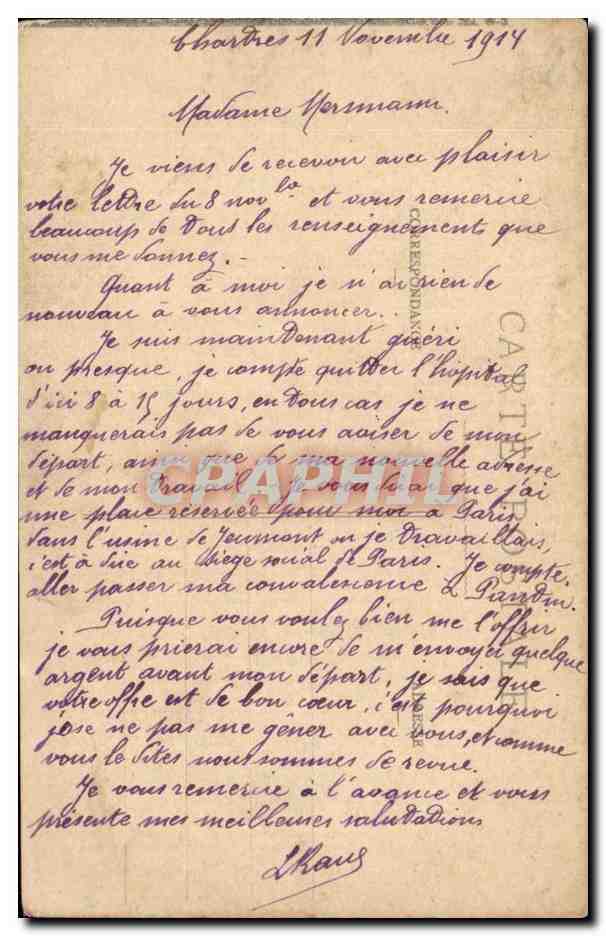 Chartres 11 Novembre 1914
Madame Mersmann.
Je viens de recevoir avec plaisir
votre lettre du 8 nov et vous remercie
beaucoup de tous les renseignements que
vous me donnez.
Quant à moi je n'ai rien de
nouveau à vous annoncer.
Je suis maintenant guéri
ou presque, je compte quitter l'hopital
d'ici 8 à 15 jours, en tous cas je ne
manquerais pas de vous aviser de mon
départ, ainsi que de ma nouvelle adresse
et de mon travail. Je vous dirai que j'ai
une place réservée pour moi à Paris
dans l'usine de Jeumont ou je travaillais,
c'est à dire au siège social de Paris. Je compte
aller passer ma convalescence à
Puisque vous voulez bien me l'offrir
je vous prierai encore de m'envoyer quelque
argent avant mon départ, je sais que
votre offre est de bon cœur, c'est pourquoi
j'ose ne pas me gêner avec vous, et comme
vous le dites nous sommes de revue.
Je vous remercie à l'avance et vous
présente mes meilleures salutations
CORRESPONDANCE
CARTE POSTALE
ADRESSE
CPAPHIL